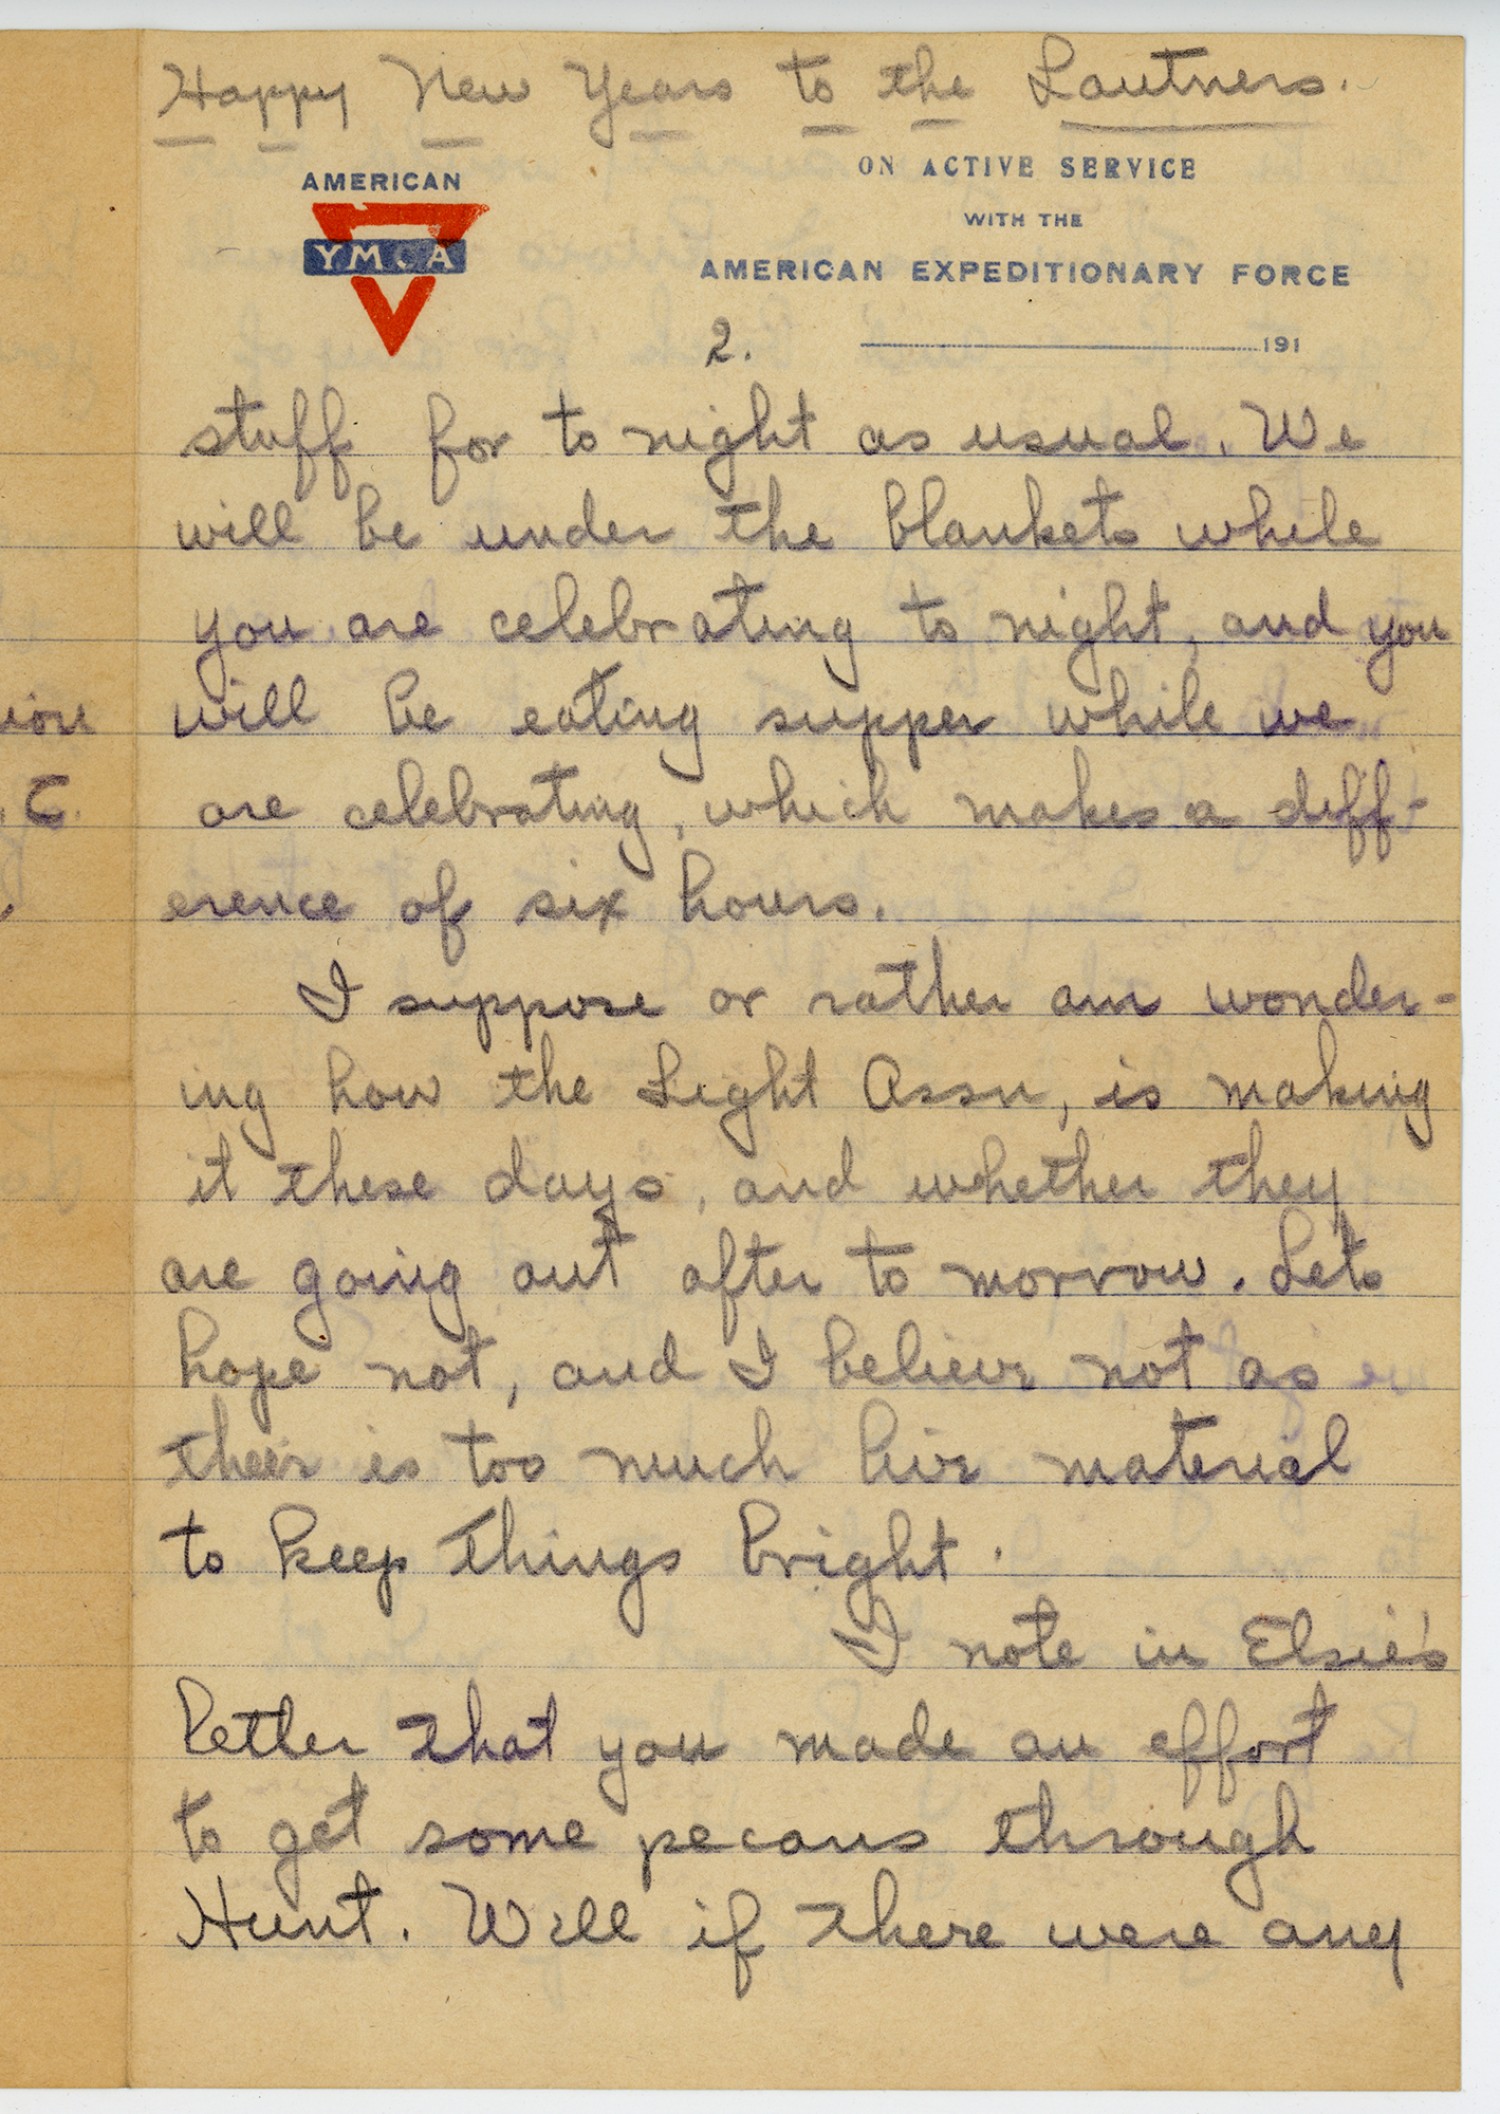 Happy New Years to the Lautners.
AMERICAN
YMCA
ON ACTIVE SERVICE
WITH THE
AMERICAN EXPEDITIONARY FORCE
2.
191
stuff for to night as usual. We
will be under the blankets while
you are celebrating to night, and you
will be eating supper while we
are celebrating, which makes a diff-
erence of six hours.
I suppose or rather am wonder-
ing how the Light Assn, is making
it these days, and whether they
are going out after to morrow. Lets
hope not, and I believe not as
their is too much live material
to keep things bright.
I note in Elsie's
letter that you made an effort
to get some pecans through
Hunt. Well if there were any